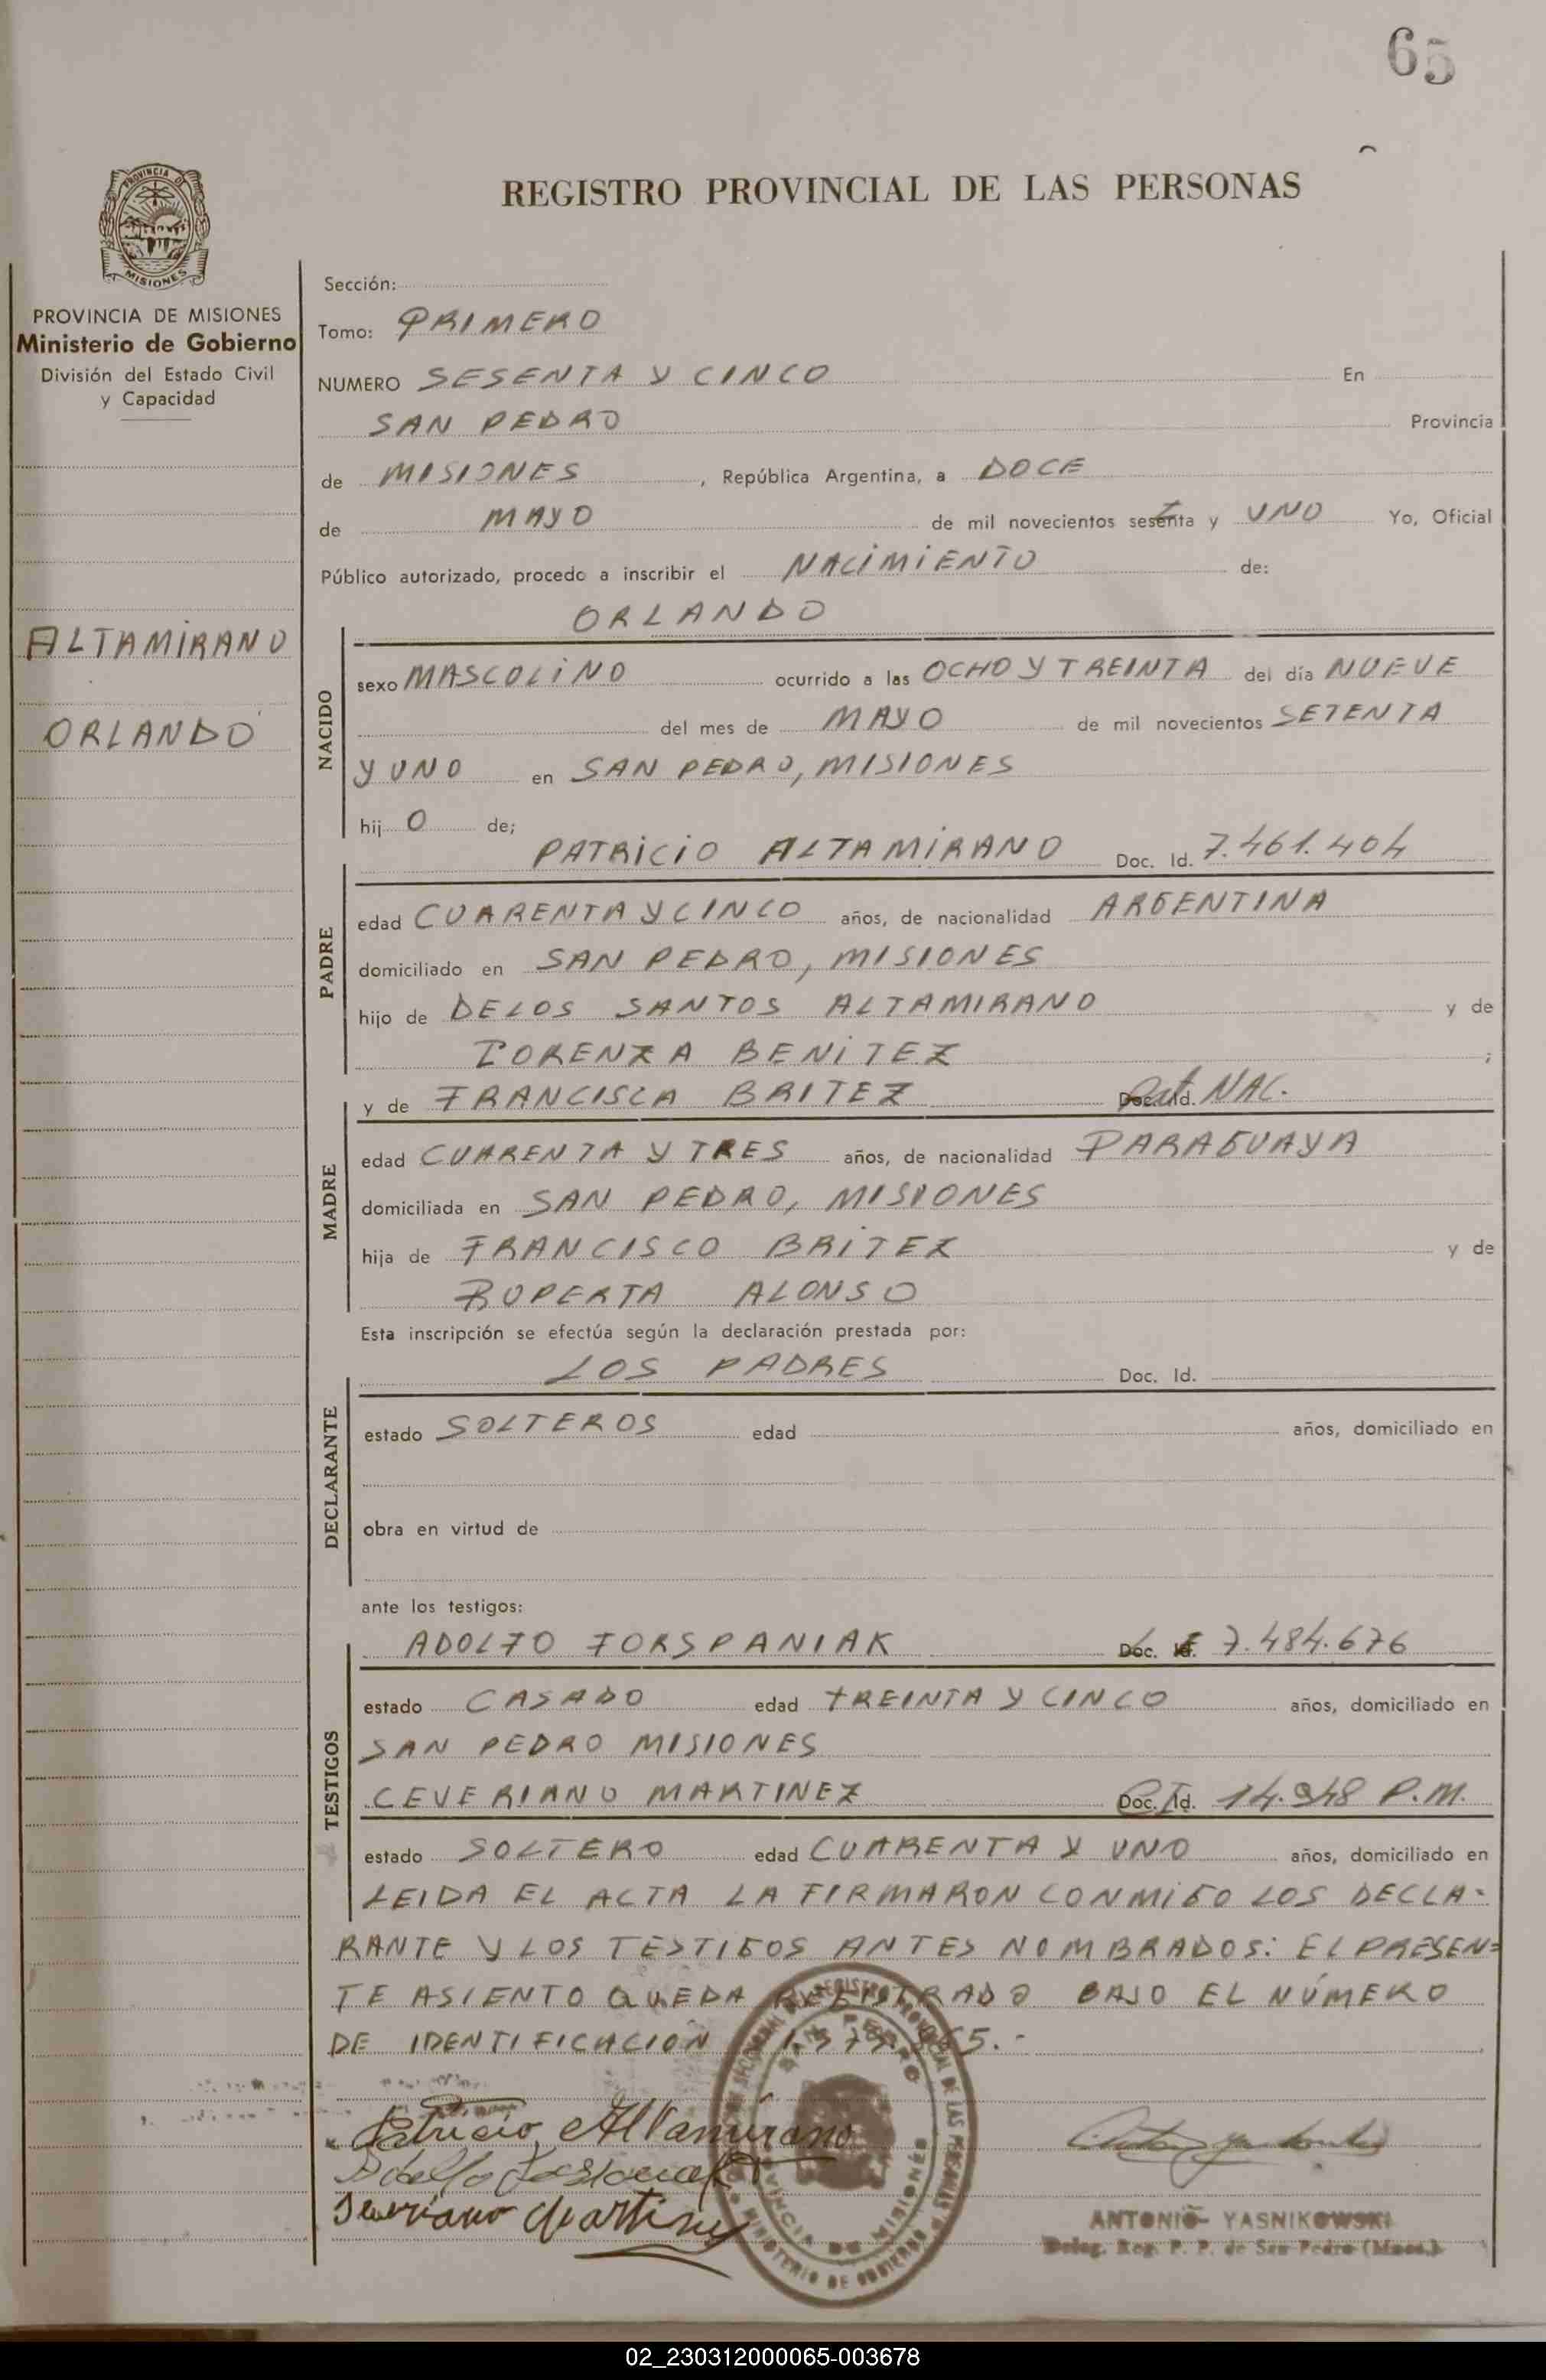 65
REGISTRO PROVINCIAL DE LAS PERSONAS
PROVINCIA DE MISIONES
PROVINCIA DE MISIONES
Ministerio de Gobierno
División del Estado Civil
y Capacidad
ALTAMIRANO
ORLANDO
Sección:
Tomo: PRIMERO
NUMERO SESENTA Y CINCO En
SAN PEDRO Provincia
de MISIONES, República Argentina, a DOCE
de MAYO de mil novecientos setenta y UNO Yo, Oficial
Público autorizado, procedo a inscribir el NACIMIENTO de:
ORLANDO
NACIDO
sexo MASCOLINO ocurrido a las OCHO Y TREINTA del día NUEVE
del mes de MAYO de mil novecientos SETENTA
Y UNO en SAN PEDRO, MISIONES
hij O de;
PATRICIO ALTAMIRANO Doc. Id. 7.461.404
PADRE
edad CUARENTA Y CINCO años, de nacionalidad ARGENTINA
domiciliado en SAN PEDRO, MISIONES
hijo de DELOS SANTOS ALTAMIRANO y de
LORENZA BENITEZ ;
y de FRANCISCA BRITEZ Doc. Id. NAC.
MADRE
edad CUARENTA Y TRES años, de nacionalidad PARAGUAYA
domiciliada en SAN PEDRO, MISIONES
hija de FRANCISCO BRITEZ y de
RUPERTA ALONSO
Esta inscripción se efectúa según la declaración prestada por:
LOS PADRES Doc. Id.
DECLARANTE
estado SOLTEROS edad años, domiciliado en
obra en virtud de
ante los testigos:
ADOLFO FORSPANIAK Doc. 7.484.676
TESTIGOS
estado CASADO edad TREINTA Y CINCO años, domiciliado en
SAN PEDRO MISIONES
CEVERIANO MARTINEZ Doc. Id. 14.948 P.M.
estado SOLTERO edad CUARENTA Y UNO años, domiciliado en
LEIDA EL ACTA LA FIRMARON CONMIGO LOS DECLA-
RANTE Y LOS TESTIGOS ANTES NOMBRADOS: EL PRESEN=
TE ASIENTO QUEDA REGISTRADO BAJO EL NÚMERO
DE IDENTIFICACION
Patricio Altamirano
Severiano Martinez
SAN PEDRO
PROVINCIA DE MISIONES
MINISTERIO DE GOBIERNO
ANTONIO YASNIKOWSKI
Deleg. Reg. P. P. de San Pedro (Mnes.)
02_230312000065-003678